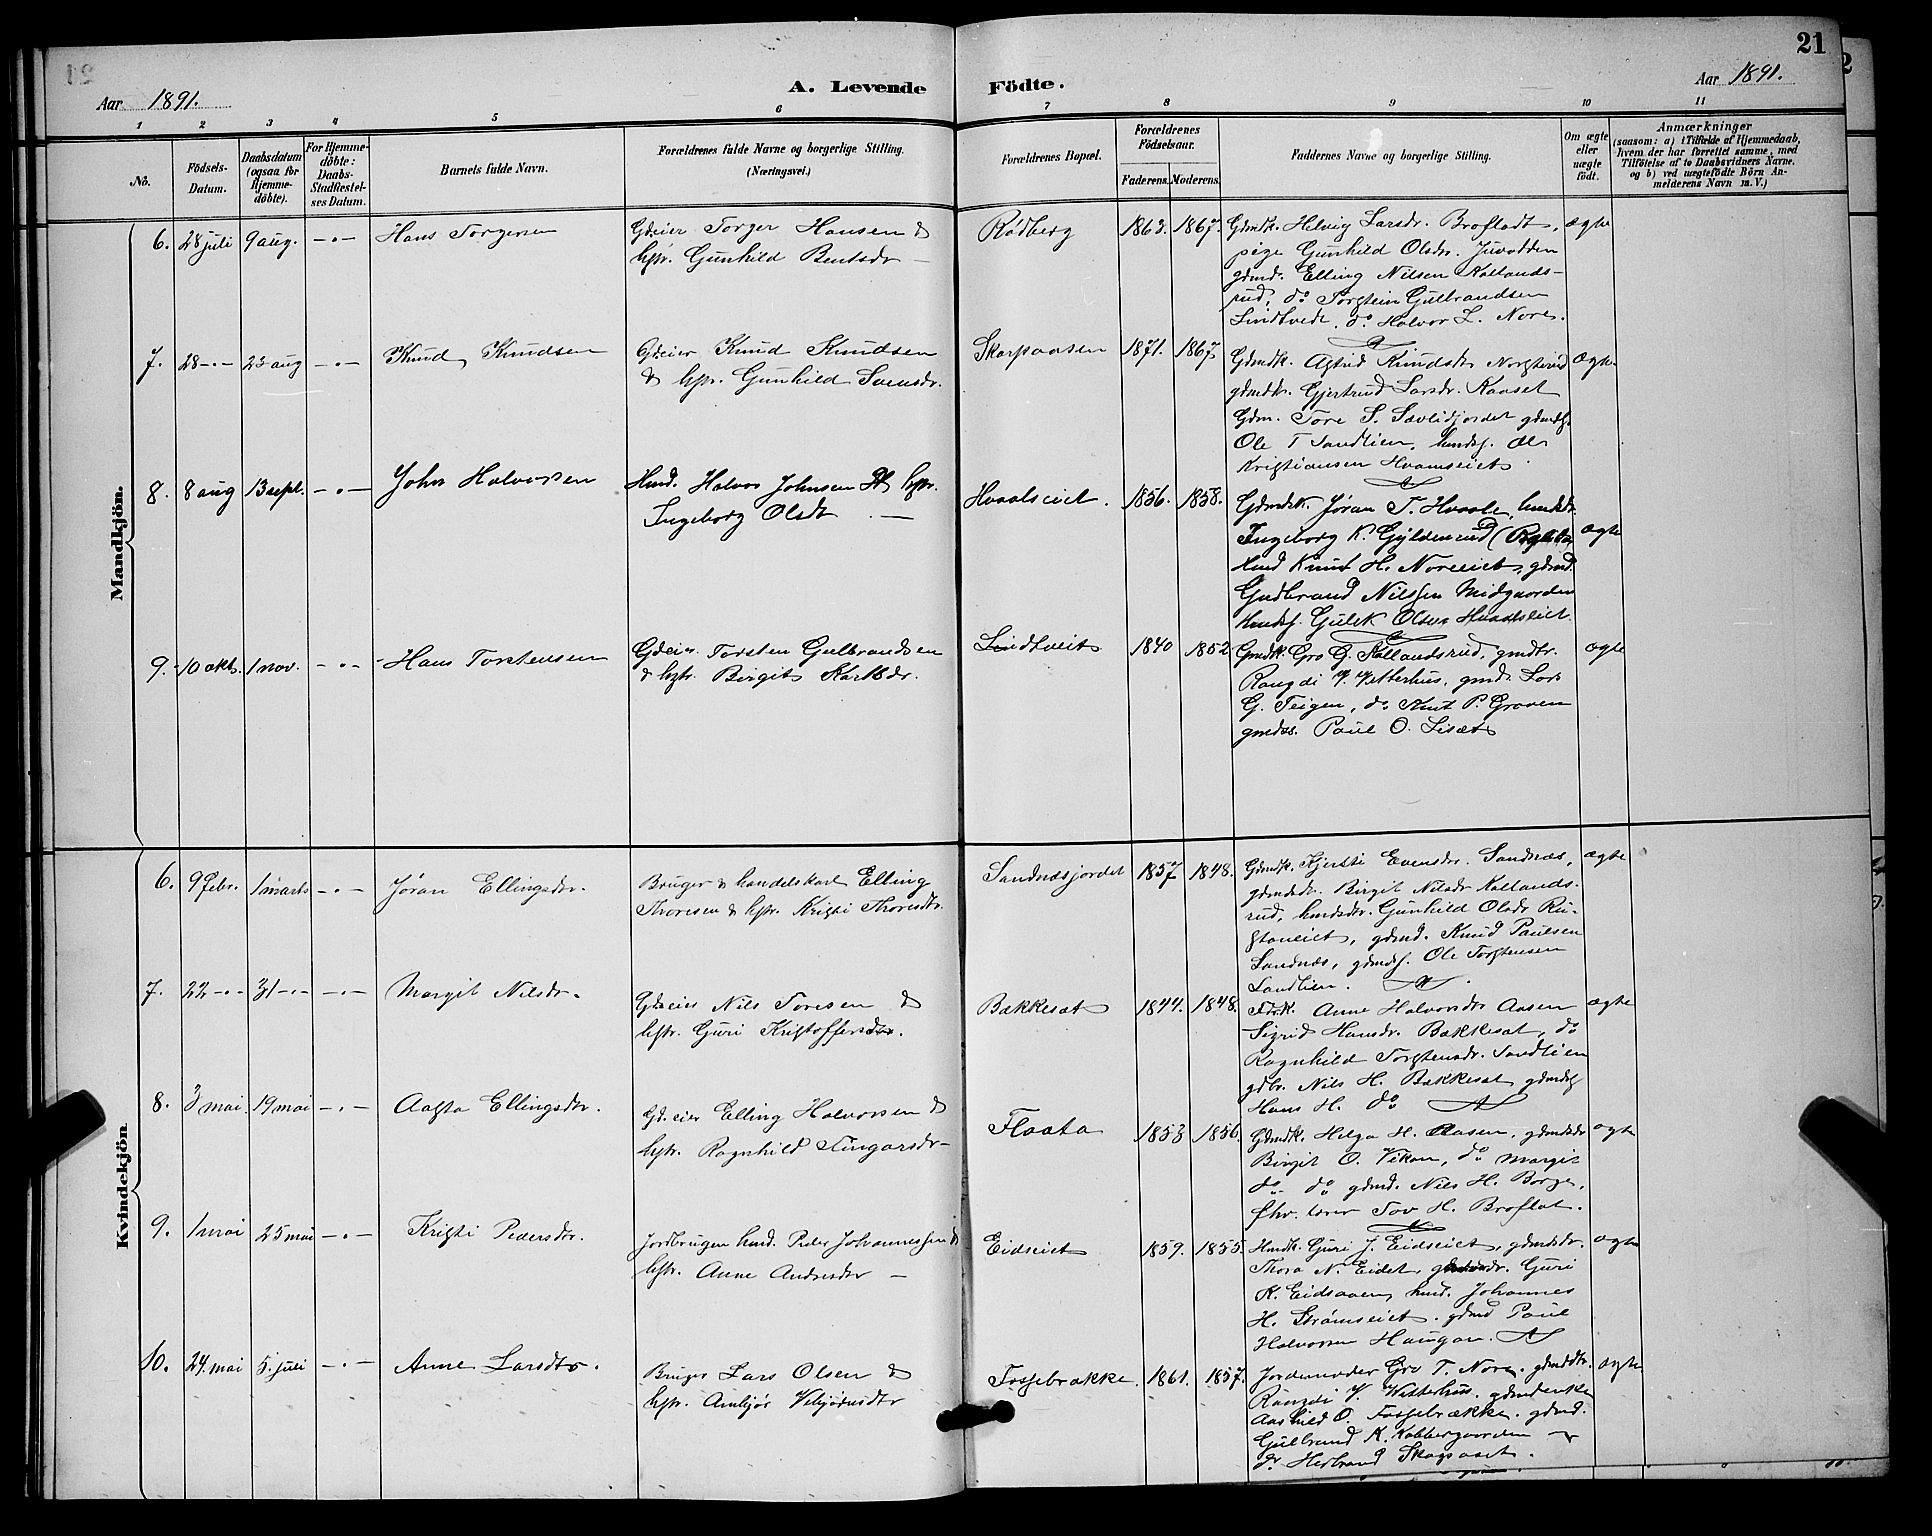 21
Aar 1891.
A. Levende Födte.
Aar 1891.
1 2 3 4 5 6 7 8 9 10 11
No.
Födsels-Datum.
Daabsdatum (ogsaa for Hjemme-döbte).
For Hjemme-döbte: Daabs-Stadfæstel-ses Datum.
Barnets fulde Navn.
Forældrenes fulde Navne og borgerlige Stilling.
(Næringsvei.)
Forældrenes Bopæl.
Forældrenes Födselsaar.
Faderens. Moderens.
Faddernes Navne og borgerlige Stilling.
Om ægte eller uægte födt.
Anmærkninger
(saasom: a) i Tilfælde af Hjemmedaab, hvem der har forrettet samme, med Tilföielse af to Daabsvidners Navne, og b) ved uægtefödte Börn Anmelderens Navn m. V.)
Mandkjön.
6. 28 juli 9 aug. -"- Hans Torgersen
Gdeier Torger Hansen &
hstr. Gunhild Bentsdr -
Rødberg 1863. 1867.
Gdmdk. Helvig Larsdr. Brofladt,
pige Gunhild Olsdr. Juvodden
gdmd. Elling Nilsen Kallands-
rud, do Torstein Gulbrandsen
Lindtvedt, do Halvor L. Nore.
ægte
7. 28 -"- 23 aug -"- Knud Knudsen
Gdeier Knud Knudsen
& hstr. Gunhild Svensdr.
Skarpaasen 1871. 1867
Gdmdk. Astrid Knudsdtr
gdmdk. Gjertrud Larsdr. Kaaset
Gdm. Tore S. Sævlidjordet gdmds.
Ole T Sandlien, hmds. Ole
Kristiansen Hvamseiet.
ægte
8. 8 aug 13 sept. -"- John Halvorsen
Hmd. Halvor Johnsen & hstr.
Ingeborg Olsdtr -
Hvaalseiet. 1856. 1858.
Gdmdsk. Jøran T. Hvaale, hmdsdr.
Ingeborg K. Gyldenrud
Hmd Knut H. Noreeiet, gdmd.
Gudbrand Nilssen Midgaarden
hmds. Gulek Olsen Hvaalseiet.
ægte
9. 10 okt. 1 nov. -"- Hans Torstensen
Gdeier Torsten Gulbrandsen
& hstr. Birgit
Lindtveit 1840 1852
Gmdk. Gro G. Kallandsrud, gmdtr.
Rangdi V. Vetterhus, gmds. Lars
G. Teigen, do Knut P. Graven
gmds. Paul O. Lisæt
ægte
Kvindekjön.
6. 9 febr. 1 marts -"- Jøran Ellingsdr.
Bruger & handelskarl Elling
Thoresen & hstr. Kristi Thoresdtr.
Sandnæsjordet 1857 1848.
Gdmdk. Kjersti Evensdr. Sandnæs,
gdmdsdr. Birgit Nilsdr Kallands-
rud, hmdsdtr. Gunhild Olsdr Ru-
staneiet, gdmd. Knud Paulsen
Sandnæs, gdmds. Ole Torstensen
Sandlien.
ægte
7. 22 -"- 31 -"- -"- Margit Nilsdr.
Gdeier Nils Toresen &
hstr. Guri Kristoffersdtr.
Bakkesæt 1844. 1848.
Anne Halvorsdtr Aasen
Sigrid Hansdr. Bækkesæt, do
Ragnhild Torstensdr. Sandlien
gdbr. Nils H. Bækkesæt gdmds
Hans H. do
ægte
8. 3 mai 19 mai -"- Aasta Ellingsdtr.
Gdeier Elling Halvorsen &
hstr. Ragnhild Tingarsdr -
Flaata 1853 1856.
Gdmdk. Helga H. Aasen, gdmdsdr
Birgit O. Vikan, do Margit
do do gdmd. Nils H. Borge,
fhv. lærer Tov H. Broflat.
ægte
9. 1 mai 25 mai -"- Kristi Pedersdtr.
Jordbruger hmd. Peder Johannessen &
hstr. Anne Andersdtr -
Eidseiet 1859. 1855.
Hmdk. Guri J. Eidseiet, gdmdsdr.
Thora N. Eidet, Guri
K. Eidsaaen, hmd. Johannes
H. Strømseiet, gdmd Paul
Halvorsen Haugan.
ægte
10. 24. mai 5. juli -"- Anne Larsdtr.
Bruger Lars Olsen &
hstr. Ambjør Vebjørnsdtr
Fossebrække. 1861. 1857.
Jordemoder Gro T. Nore. gdmddtr.
Rangdi V. Vetterhus, gdmdenke
Aashild O. Fossebrække. gdmd.
Gulbrand K. Kabbergaarden
do Herbrand Skogsaset.
ægte